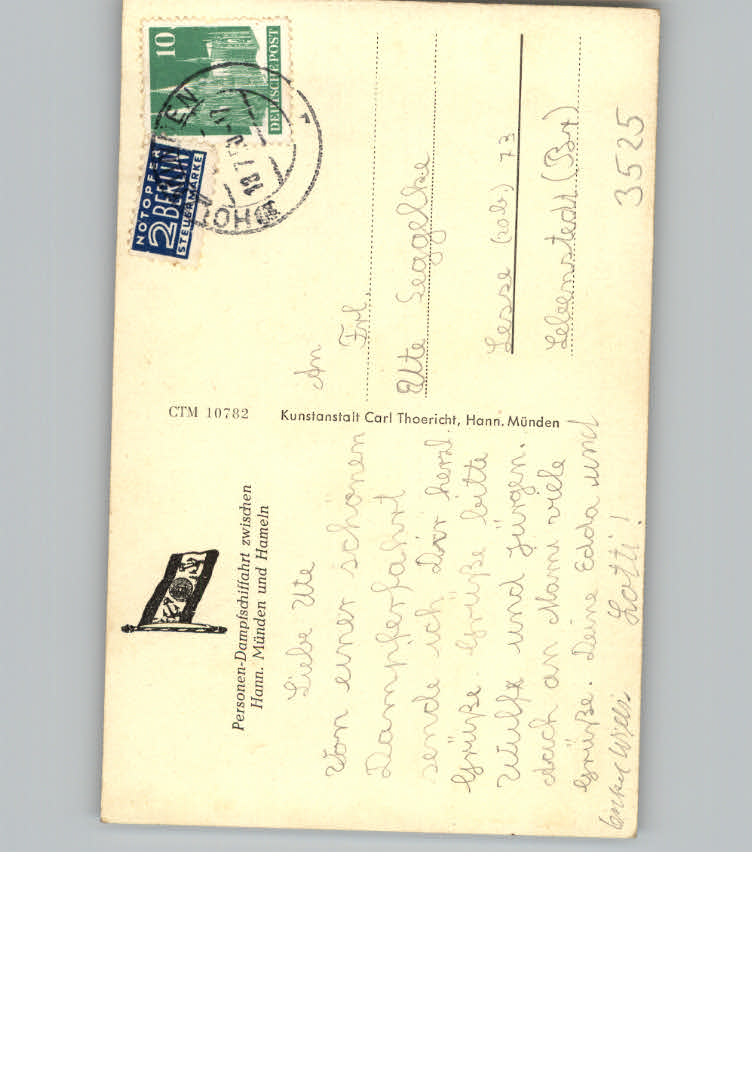 Personen-Dampfschiffahrt zwischen
Hann. Münden und Hameln
Liebe Ute
Von einer schönen
Dampferfahrt
sende ich Dir herzl
Grüße. Grüße bitte
Wulfx und Jürgen.
doch an Mami viele
Grüße. Deine Edda und
Lotti!
Onkel
CTM 10782
Kunstanstalt Carl Thoericht, Hann. Münden
10
DEUTSCHE POST
NOTOPFER
2 BERLIN
STEUERMARKE
18.7
An
Frl.
Ute Seggelke
Lesse 73
Lebenstedt (Br)
3525